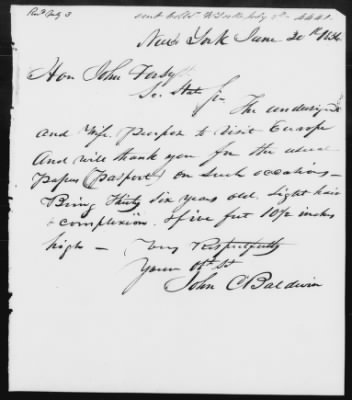 Recd July 3
New York June 20th 1836
Hon John Forsyth
Sec State
Sir
The undersigned
and Wife Purpose to visit Europe
And will thank you for the usual
Papers (Pasport) on such occations –
Being thirty six years old. Light hair
& complexion. five feet 10½ inches
high – Very Respectfully
Your Obt St
John C Baldwin